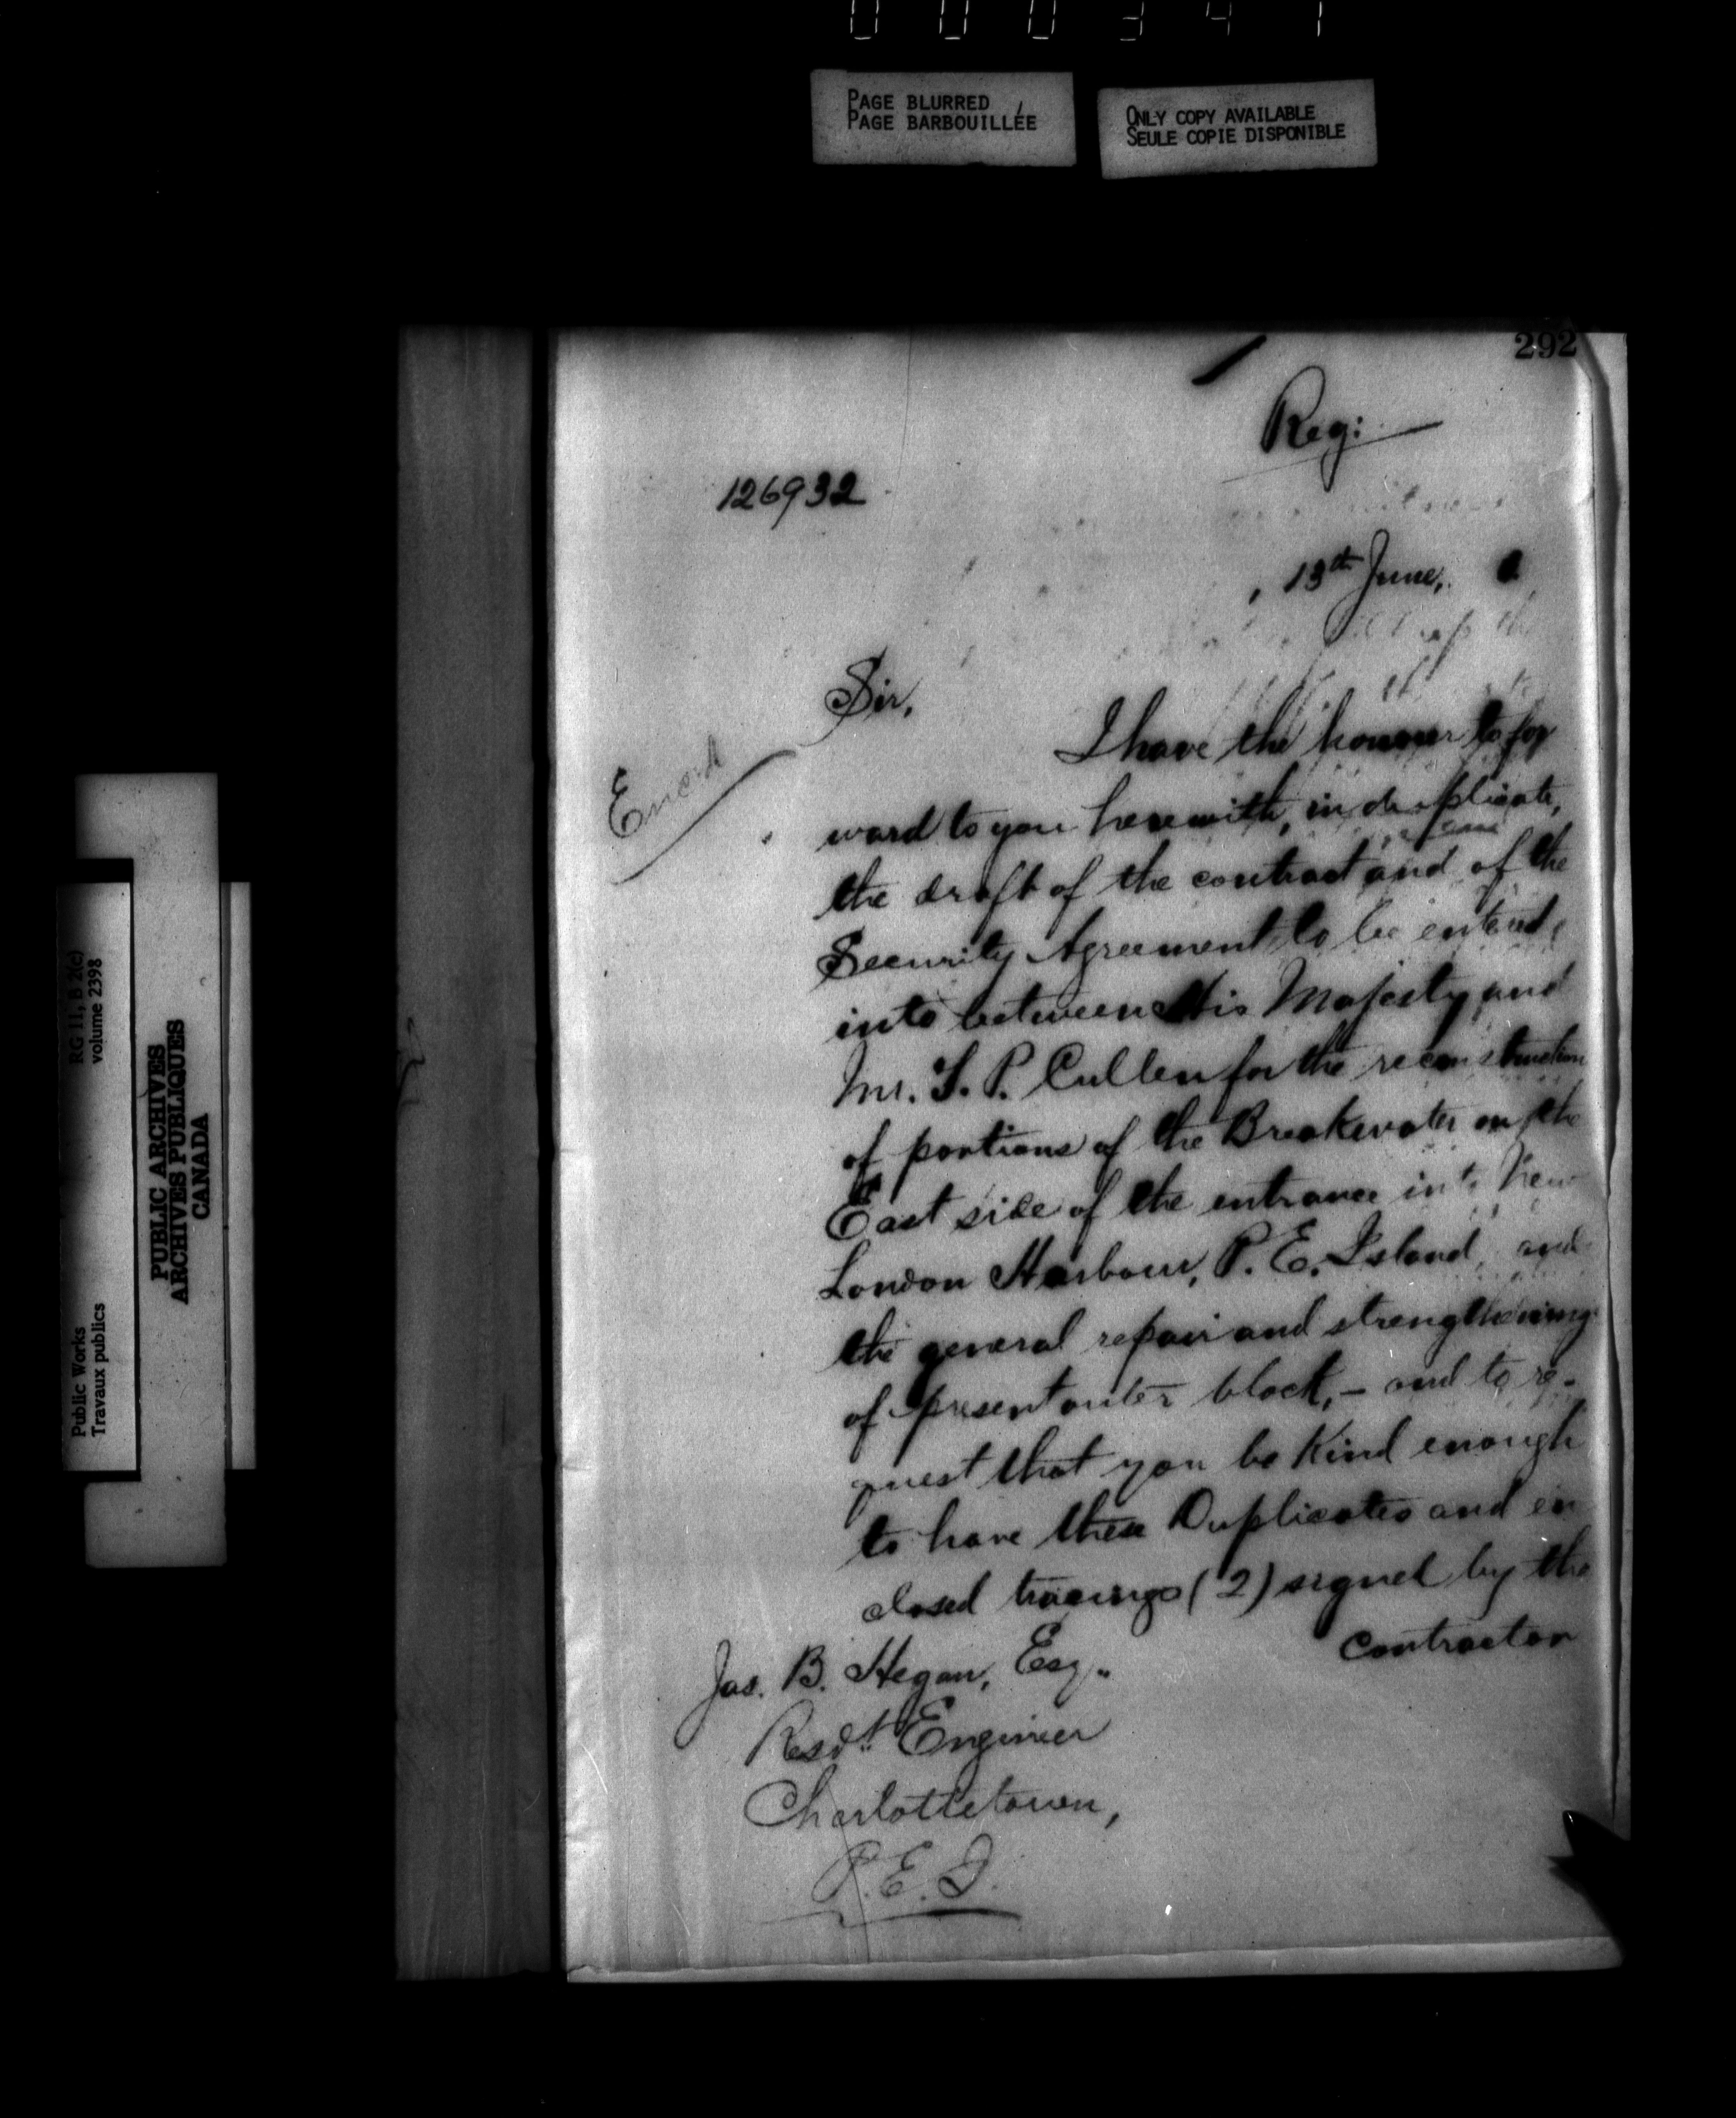 000341
PAGE BLURRED
PAGE BARBOUILLÉE
ONLY COPY AVAILABLE
SEULE COPIE DISPONIBLE
292
Reg:
126932
, 13th June,
Sir,
I have the honour to for
ward to you herewith, in duplicate,
the draft of the contract and of the
Security Agreement to be entered
into between His Majesty and
Mr. S. P. Cullen for the reconstruction
of portions of the Breakwater on the
East side of the entrance into New
London Harbour, P. E. Island, and
the general repair and strengthening
of present outer block, – and to re-
quest that you be Kind enough
to have these Duplicates and en
closed tracings (2) signed by the
Contractor
Jas. B. Hegan, Esq.
Resdt. Engineer
Charlottetown,
P. E. I.
RG 11, B 2(c)
volume 2398
PUBLIC ARCHIVES
ARCHIVES PUBLIQUES
CANADA
Public Works
Travaux publics